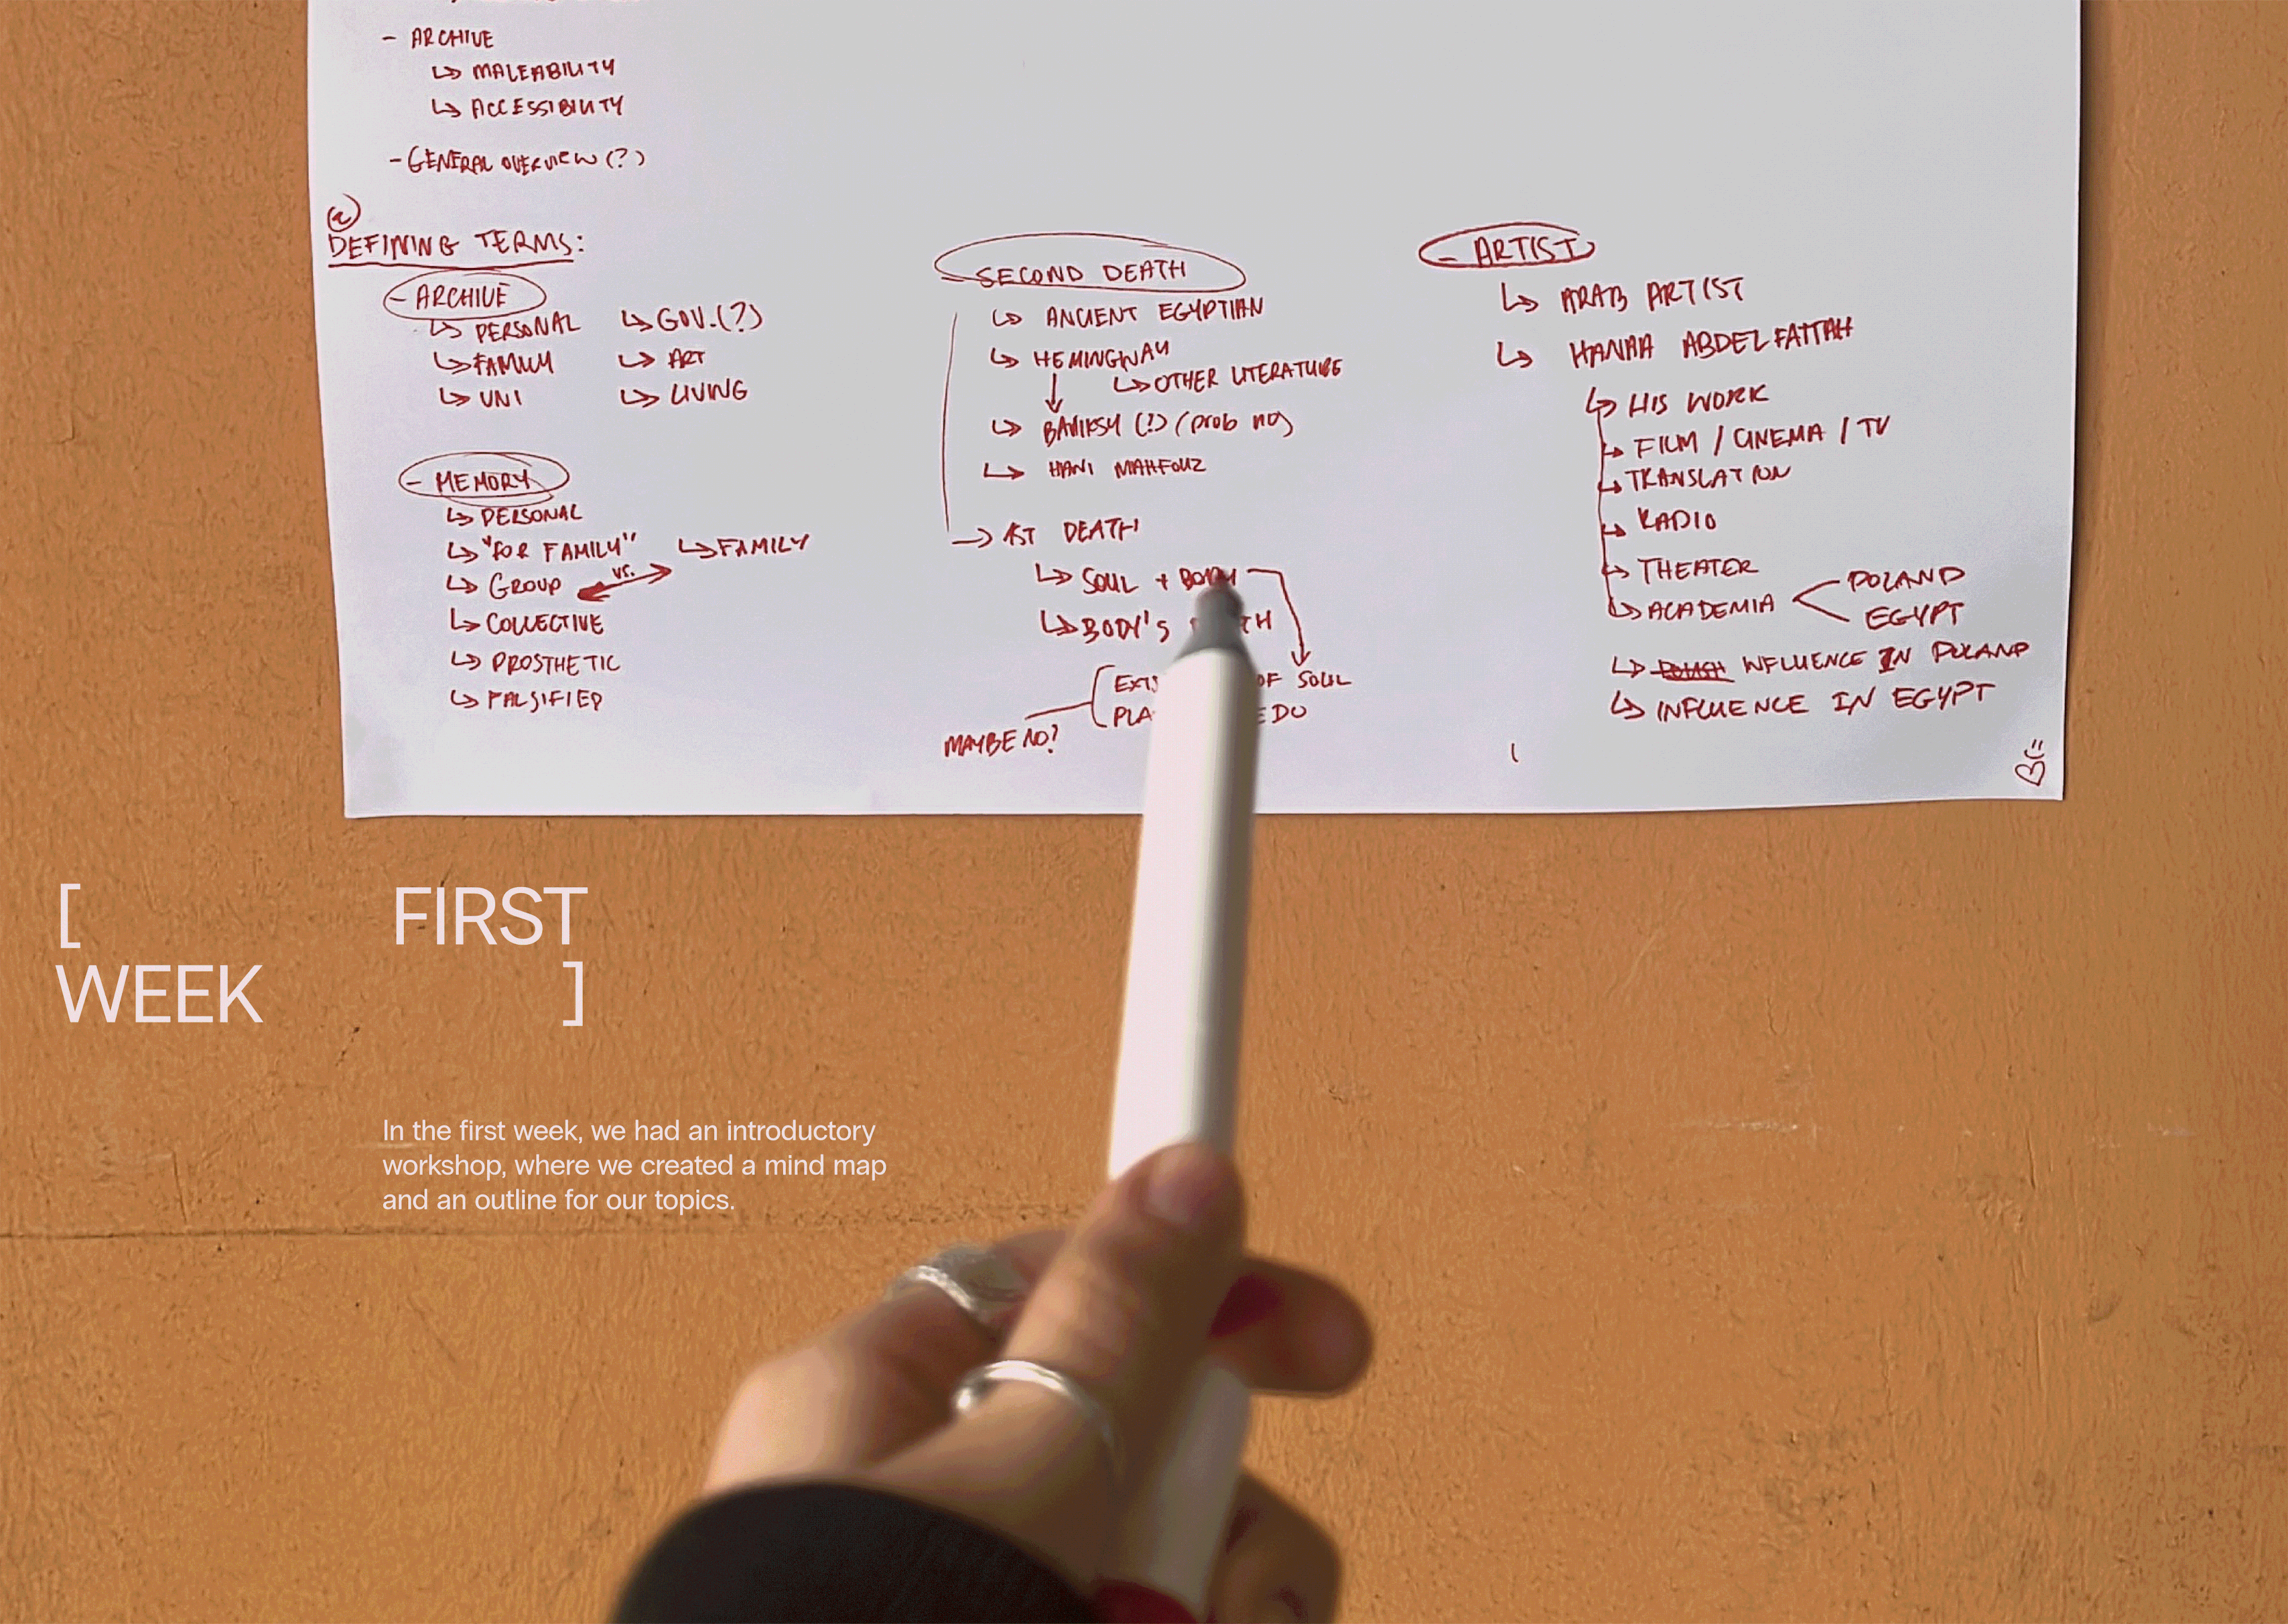 - ARCHIVE
↳ MALEABILITY
↳ ACCESSIBILITY
- GENERAL OVERVIEW (?)
2
DEFINING TERMS:
- ARCHIVE
↳ PERSONAL
↳ FAMILY
↳ UNI
↳ GOV. (?)
↳ ART
↳ LIVING
- MEMORY
↳ PERSONAL
↳ "FOR FAMILY"
↳ GROUP vs. ↳ FAMILY
↳ COLLECTIVE
↳ PROSTHETIC
↳ FALSIFIED
- SECOND DEATH
↳ ANCIENT EGYPTIAN
↳ HEMINGWAY
↳ OTHER LITERATURE
↳ BANKSY (?) (prob no)
↳ HANI MAHFOUZ
→ 1ST DEATH
↳ SOUL + BODY
↳ BODY'S
OF SOUL
MAYBE NO?
- ARTIST
↳ ARAB ARTIST
↳ HANAA ABDELFATTAH
↳ HIS WORK
↳ FILM / CINEMA / TV
↳ TRANSLATION
↳ RADIO
↳ THEATER
↳ ACADEMIA < POLAND
EGYPT
↳ INFLUENCE IN POLAND
↳ INFLUENCE IN EGYPT
[ FIRST
WEEK ]
In the first week, we had an introductory
workshop, where we created a mind map
and an outline for our topics.